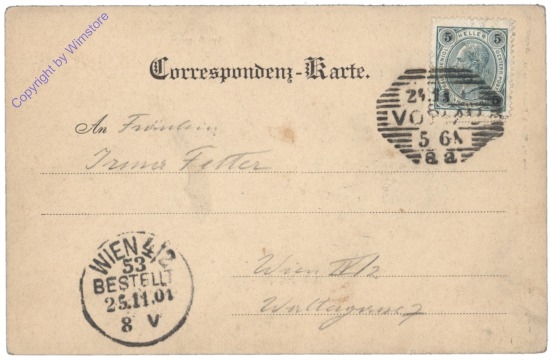 Copyright by Wimstore
5 HELLER 5
Correspondenz-Karte.
An Fräulein
Irma Fetter
24.11
5 6N
a a
WIEN 4/2
53
BESTELLT
25.11.01
8 V
Wien IV/2